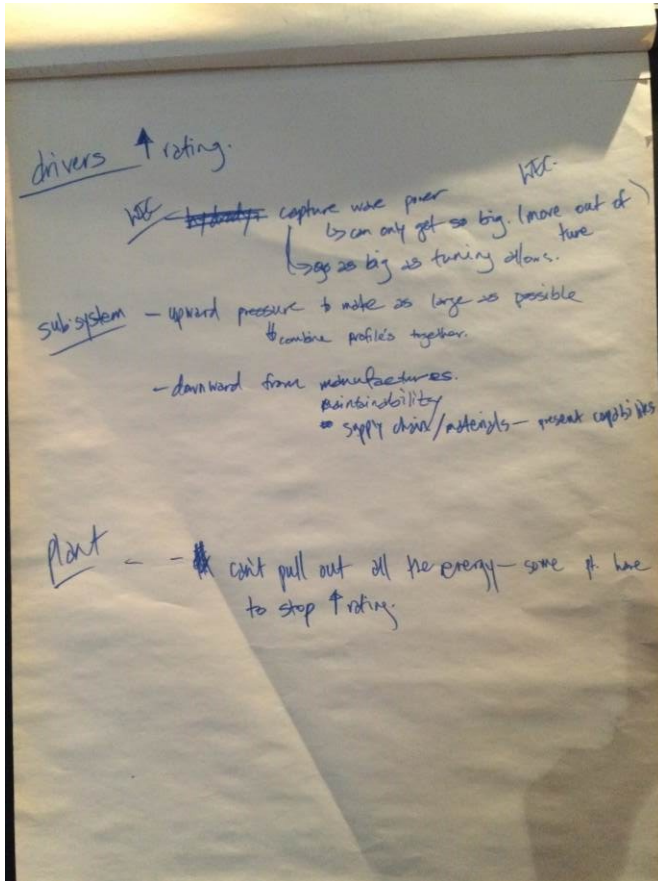 drivers ↑ rating.
WEC.
WEC – capture wave power
↳ can only get so big. (more out of tune)
↳ go as big as tuning allows.
subsystem – upward pressure to make as large as possible
combine profile's together.
– downward from manufactures.
maintainability
supply chain/materials – present capabilities
Plant – – can't pull out all the energy – some pt. have
to stop ↑ rating.